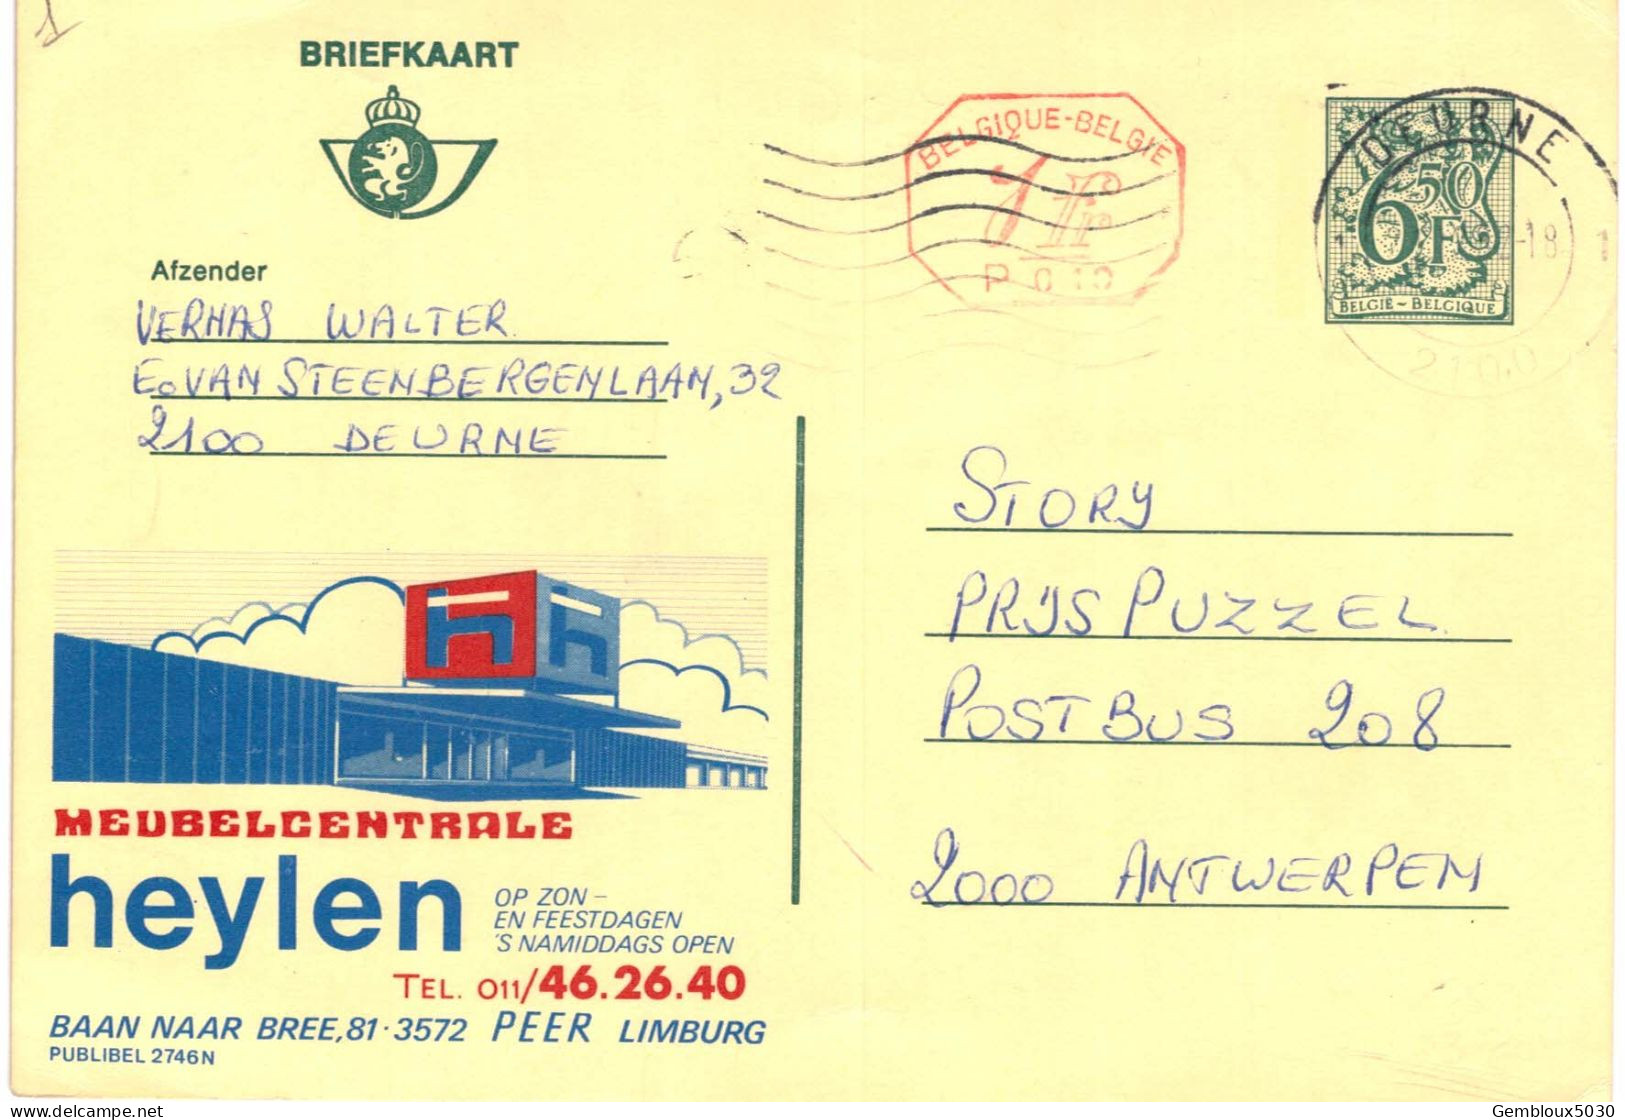 BRIEFKAART
BELGIQUE-BELGIE
1 Fr
P 010
DEURNE
-18
2100
6 50 F
BELGIË - BELGIQUE
Afzender
VERHAS WALTER
E. VAN STEENBERGENLAAN, 32
2100 DEURNE
STORY
PRIJS PUZZEL
POSTBUS 208
2000 ANTWERPEN
MEUBELCENTRALE
heylen
OP ZON -
EN FEESTDAGEN
'S NAMIDDAGS OPEN
TEL. 011/46.26.40
BAAN NAAR BREE, 81 · 3572 PEER LIMBURG
PUBLIBEL 2746 N
Gembloux5030
delcampe.net